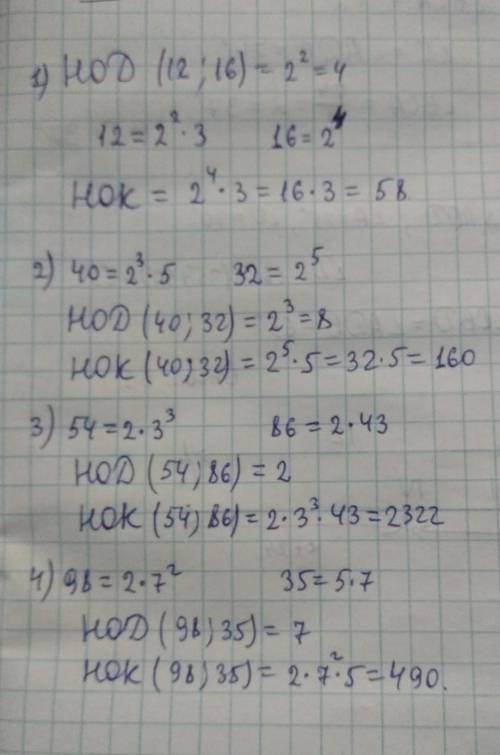 1) НОД (12; 16) = 2² = 4
12 = 2² · 3 16 = 2⁴
НОК = 2⁴ · 3 = 16 · 3 = 58
2) 40 = 2³ · 5 32 = 2⁵
НОД (40; 32) = 2³ = 8
НОК (40; 32) = 2⁵ · 5 = 32 · 5 = 160
3) 54 = 2 · 3³ 86 = 2 · 43
НОД (54; 86) = 2
НОК (54; 86) = 2 · 3³ · 43 = 2322
4) 98 = 2 · 7² 35 = 5 · 7
НОД (98; 35) = 7
НОК (98; 35) = 2 · 7² · 5 = 490.